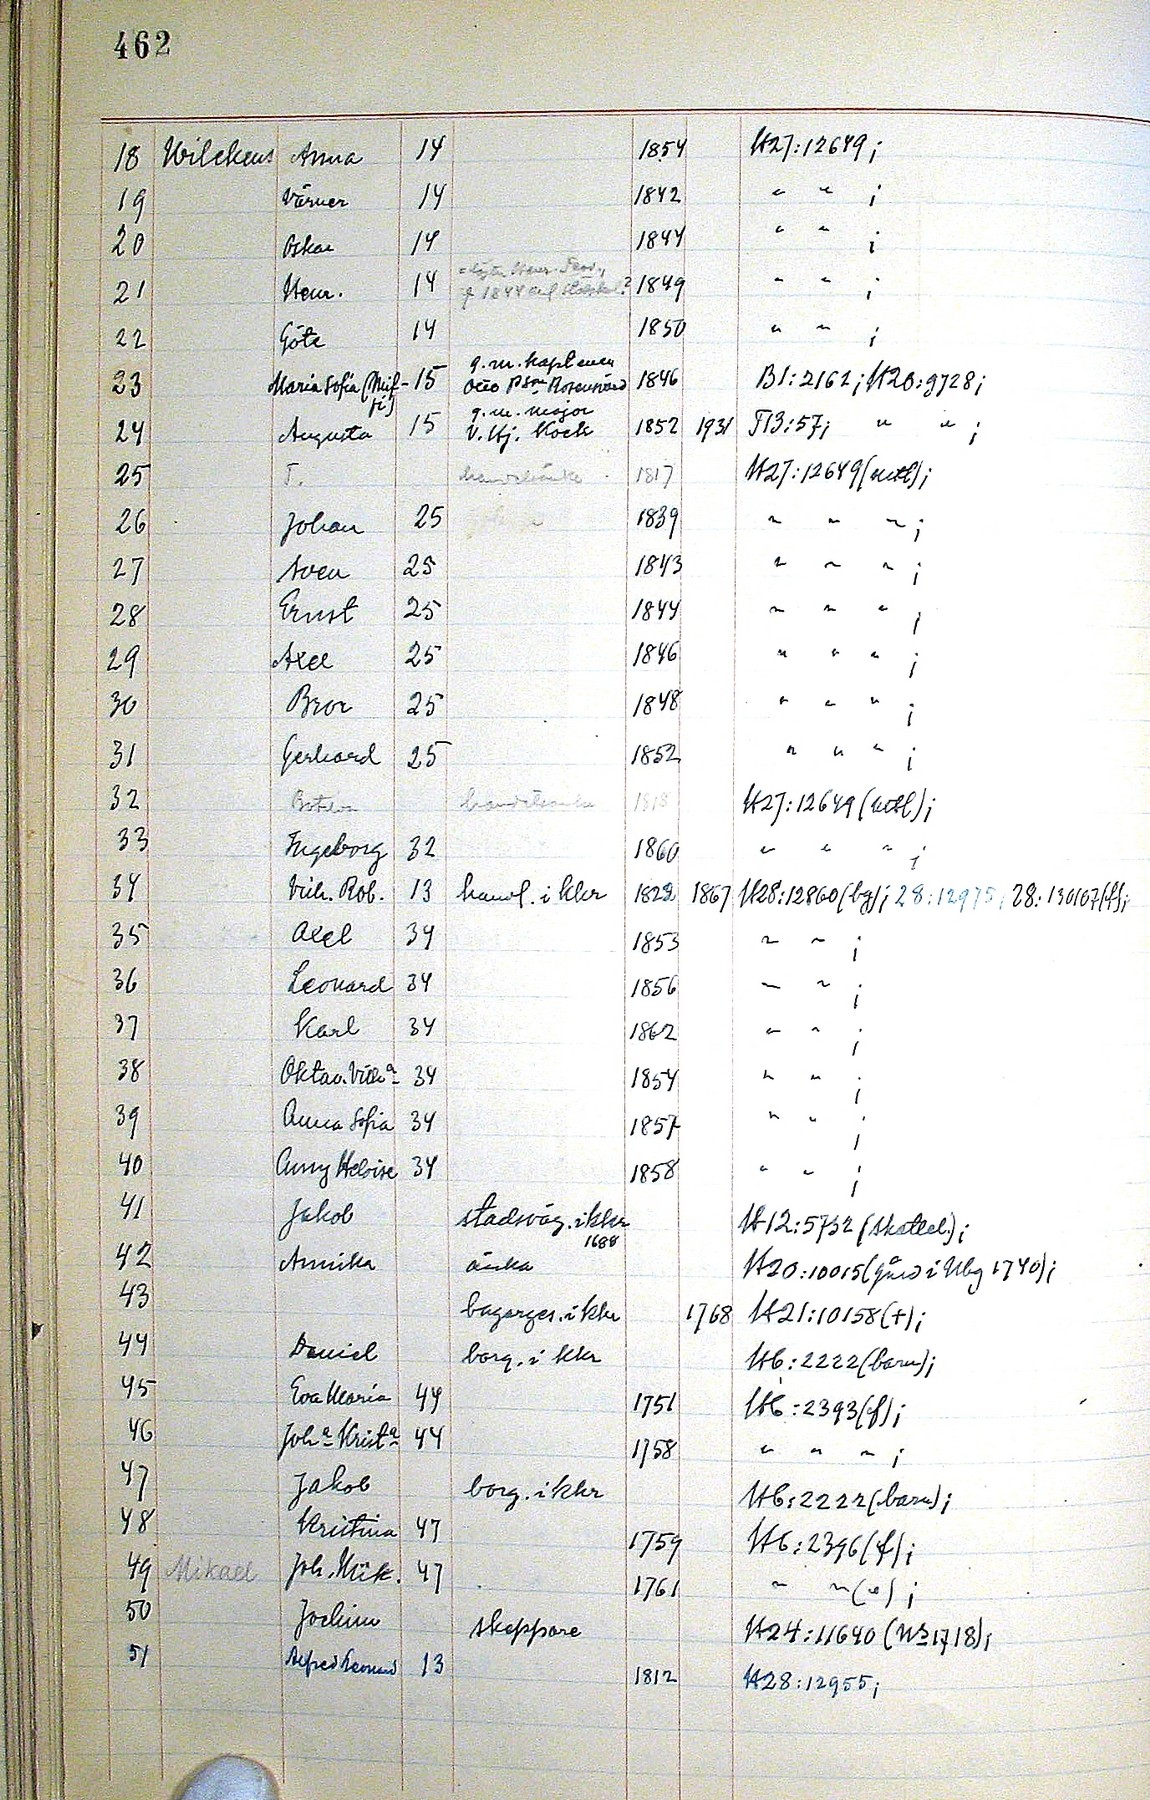 462
18 Wilckens Anna 14 1854 H27:12649;
19 Värner 14 1842 " " ;
20 Oskar 14 1844 " " ;
21 Henr. 14 1849 " " ;
22 Göte 14 1850 " " ;
g.m. kaptenen
23 Maria Sofia (Mif- 15 Otto P:son Rosensvärd 1846 B1:2162; H20:9728;
fi) g.m. major
24 Augusta 15 V. Hj. Kock 1852 1931 T13:57; " " ;
25 T. 1817 H27:12649 (utl);
26 Johan 25 1839 " " " ;
27 Sven 25 1843 " " " ;
28 Ernst 25 1844 " " " ;
29 Axel 25 1846 " " " ;
30 Bror 25 1848 " " " ;
31 Gerhard 25 1852 " " " ;
32 1818 H27:12649 (utl);
33 Ingeborg 32 1860 " " " ;
34 Vilh. Rob. 13 handl. i kkr 1822 1867 H28:12860 (bg); 28:12975; 28:130167(f);
35 Axel 34 1853 " " ;
36 Leonard 34 1856 " " ;
37 Karl 34 1862 " " ;
38 Oktav. Vilh:a 34 1854 " " ;
39 Anna Sofia 34 1857 " " ;
40 Anny Heloise 34 1858 " " ;
41 Jakob stadsväg. i kkr H12:5732 (skattel.);
1688
42 Annika änka H20:10015 (gård i Ubg 1740);
43 bagarges. i kkr 1768 H21:10158 (+);
44 Daniel borg. i kkr H6:2222 (barn);
45 Eva Maria 44 1751 H6:2393 (f);
46 Joh:a Krist:a 44 1758 " " " ;
47 Jakob borg. i kkr H6:2222 (barn);
48 Kristina 47 1759 H6:2396 (f);
49 Mikael Joh. Mik. 47 1761 " " (") ;
50 Jochim skeppare H24:11640 (1718);
51 Alfred Leonard 13 1812 H28:12955;